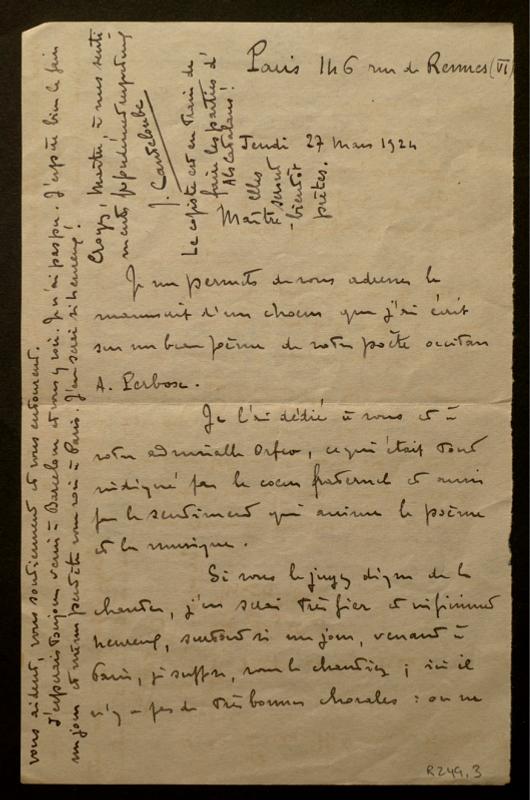 Paris 146 rue de Rennes (VI)
Jeudi 27 Mars 1924
Maître,
Je me permets de vous adresser le
manuscrit d'un chœur que j'ai écrit
sur un bien poème de notre poète occitan
A. Perbosc.
Je l'ai dédié à vous et à
votre admirable Orfeo, ce qui était tout
indiqué par le cœur fraternel et aussi
par le sentiment qui anime le poème
et la musique.
Si vous le jugez digne de le
chanter, j'en serai très fier et infiniment
heureux, surtout si un jour, venant à
Paris, je suppose, vous le chantiez ; ici il
n'y a pas de très bonnes chorales : on ne
vous aident, vous soutiennent et vous entourent.
J'espérais toujours venir à Barcelone et vous y voir. Je n'ai pas pu. J'espère bien le faire
un jour et même peut-être vous voir à Paris. J'en serai si heureux !
Croyez, Maître, à mes senti
ments profondément respectueux
J. Canteloube
Le copiste est en train de
faire les parties d'
Als Catalans !
elles
seront
bientôt
prêtes.
R249,3